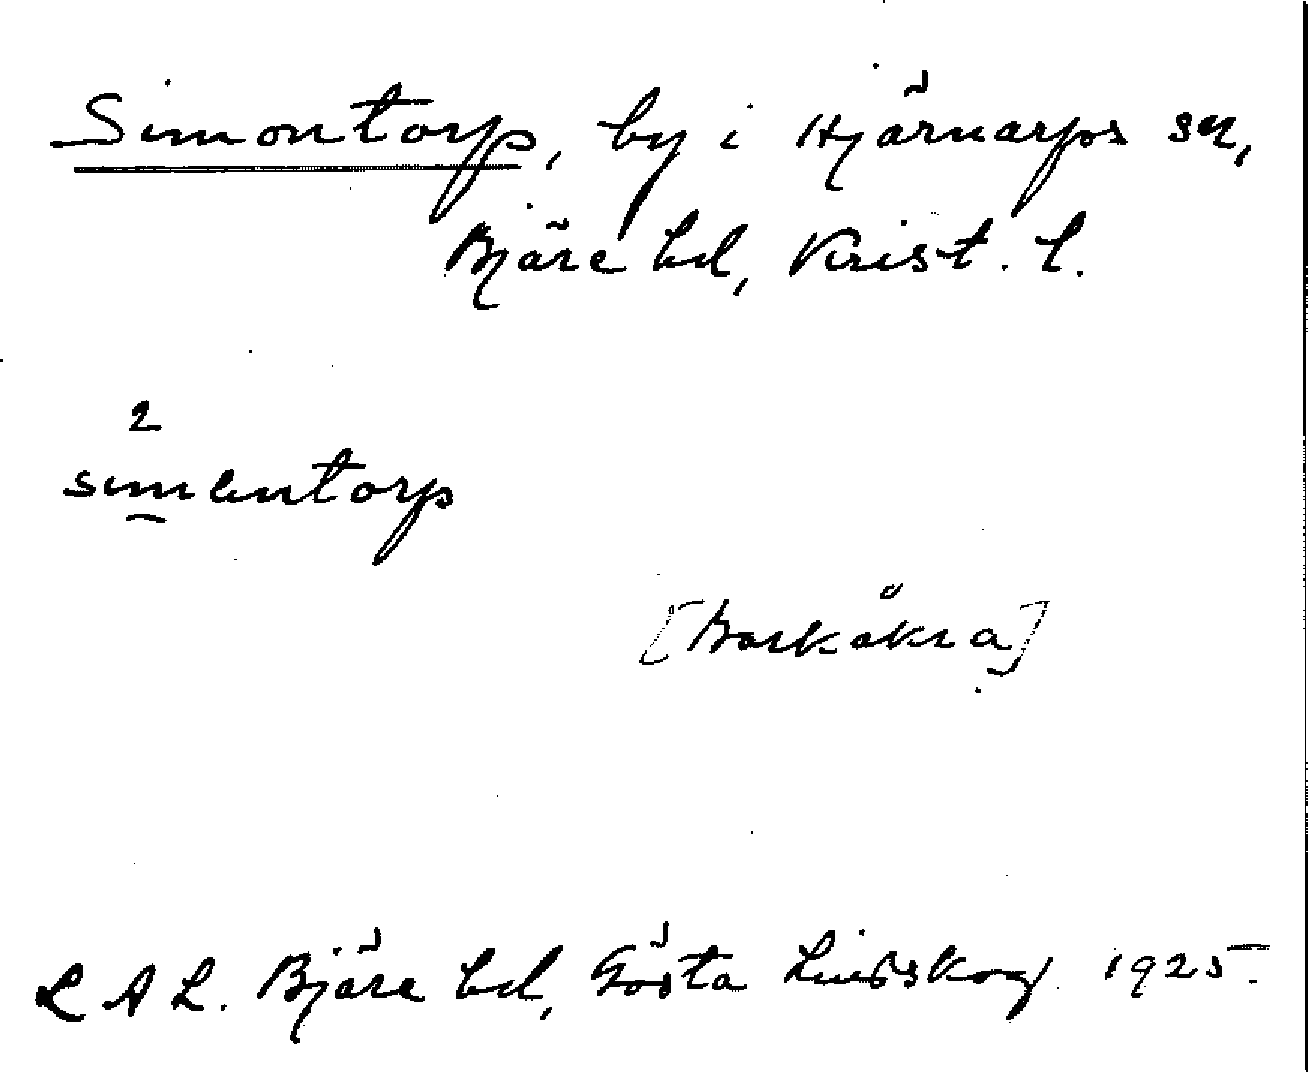 Simontorp, by i Hjärnarps sn,
Bjäre hd, Krist. l.
2
simentorp
[Barkåkra]
L A L. Bjäre hd, Gösta 1925